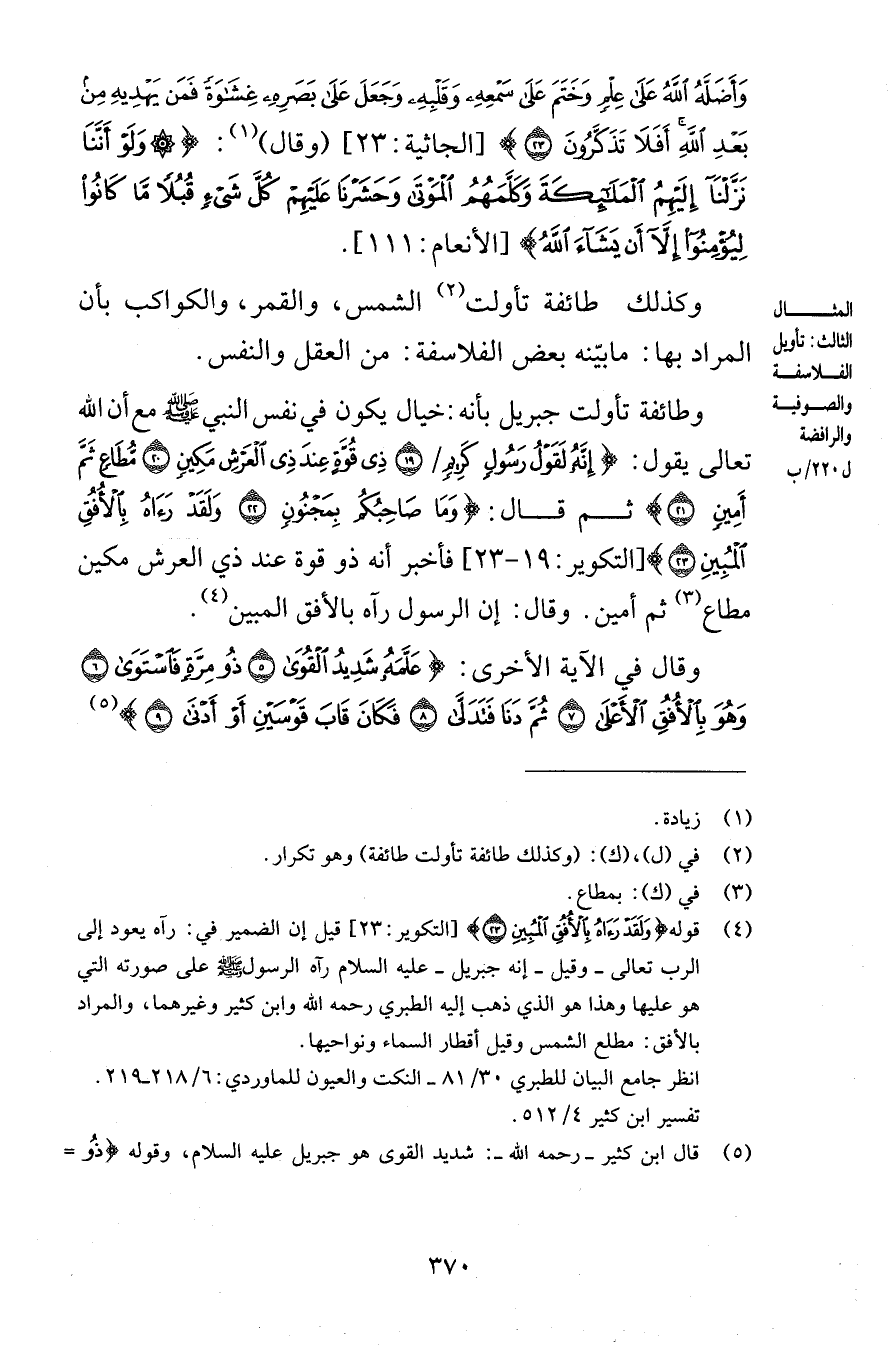 وَأَضَلَّهُ اللَّهُ عَلَىٰ عِلْمٍ وَخَتَمَ عَلَىٰ سَمْعِهِ وَقَلْبِهِ وَجَعَلَ عَلَىٰ بَصَرِهِ غِشَاوَةً فَمَن يَهْدِيهِ مِنْ
بَعْدِ اللَّهِ أَفَلَا تَذَكَّرُونَ ﴿٢٣﴾ ﴾ [الجاثية: ٢٣] (وقال)(١): ﴿ ۞ وَلَوْ أَنَّنَا
نَزَّلْنَا إِلَيْهِمُ الْمَلَائِكَةَ وَكَلَّمَهُمُ الْمَوْتَىٰ وَحَشَرْنَا عَلَيْهِمْ كُلَّ شَيْءٍ قُبُلًا مَّا كَانُوا
لِيُؤْمِنُوا إِلَّا أَن يَشَاءَ اللَّهُ ﴾ [الأنعام: ١١١].
وكذلك طائفة تأولت(٢) الشمس، والقمر، والكواكب بأن
المراد بها: مابيّنه بعض الفلاسفة: من العقل والنفس.
المثـــــــال
الثالث: تأويل
الفـلاسفـة
والصـوفيـة
والرافضة
ل ٢٢٠/ب
وطائفة تأولت جبريل بأنه: خيال يكون في نفس النبي ﷺ مع أن الله
تعالى يقول: ﴿ إِنَّهُ لَقَوْلُ رَسُولٍ كَرِيمٍ/ ﴿١٩﴾ ذِي قُوَّةٍ عِندَ ذِي الْعَرْشِ مَكِينٍ ﴿٢٠﴾ مُّطَاعٍ ثَمَّ
أَمِينٍ ﴿٢١﴾ ﴾ ثـــم قـــال: ﴿ وَمَا صَاحِبُكُم بِمَجْنُونٍ ﴿٢٢﴾ وَلَقَدْ رَءَاهُ بِالْأُفُقِ
الْمُبِينِ ﴿٢٣﴾ ﴾ [التكوير: ١٩-٢٣] فأخبر أنه ذو قوة عند ذي العرش مكين
مطاع(٣) ثم أمين. وقال: إن الرسول رآه بالأفق المبين(٤).
وقال في الآية الأخرى: ﴿ عَلَّمَهُ شَدِيدُ الْقُوَىٰ ﴿٥﴾ ذُو مِرَّةٍ فَاسْتَوَىٰ ﴿٦﴾
وَهُوَ بِالْأُفُقِ الْأَعْلَىٰ ﴿٧﴾ ثُمَّ دَنَا فَتَدَلَّىٰ ﴿٨﴾ فَكَانَ قَابَ قَوْسَيْنِ أَوْ أَدْنَىٰ ﴿٩﴾ ﴾(٥)
(١) زيادة.
(٢) في (ل)،(ك): (وكذلك طائفة تأولت طائفة) وهو تكرار.
(٣) في (ك): بمطاع.
(٤) قوله ﴿ وَلَقَدْ رَءَاهُ بِالْأُفُقِ الْمُبِينِ ﴿٢٣﴾ ﴾ [التكوير: ٢٣] قيل إن الضمير في: رآه يعود إلى
الرب تعالى ـ وقيل ـ إنه جبريل ـ عليه السلام رآه الرسول ﷺ على صورته التي
هو عليها وهذا هو الذي ذهب إليه الطبري رحمه الله وابن كثير وغيرهما، والمراد
بالأفق: مطلع الشمس وقيل أقطار السماء ونواحيها.
انظر جامع البيان للطبري ٣٠/ ٨١ ـ النكت والعيون للماوردي: ٦/ ٢١٨ـ٢١٩.
تفسير ابن كثير ٤/ ٥١٢.
(٥) قال ابن كثير ـ رحمه الله ـ: شديد القوى هو جبريل عليه السلام، وقوله ﴿ذُو =
٣٧٠